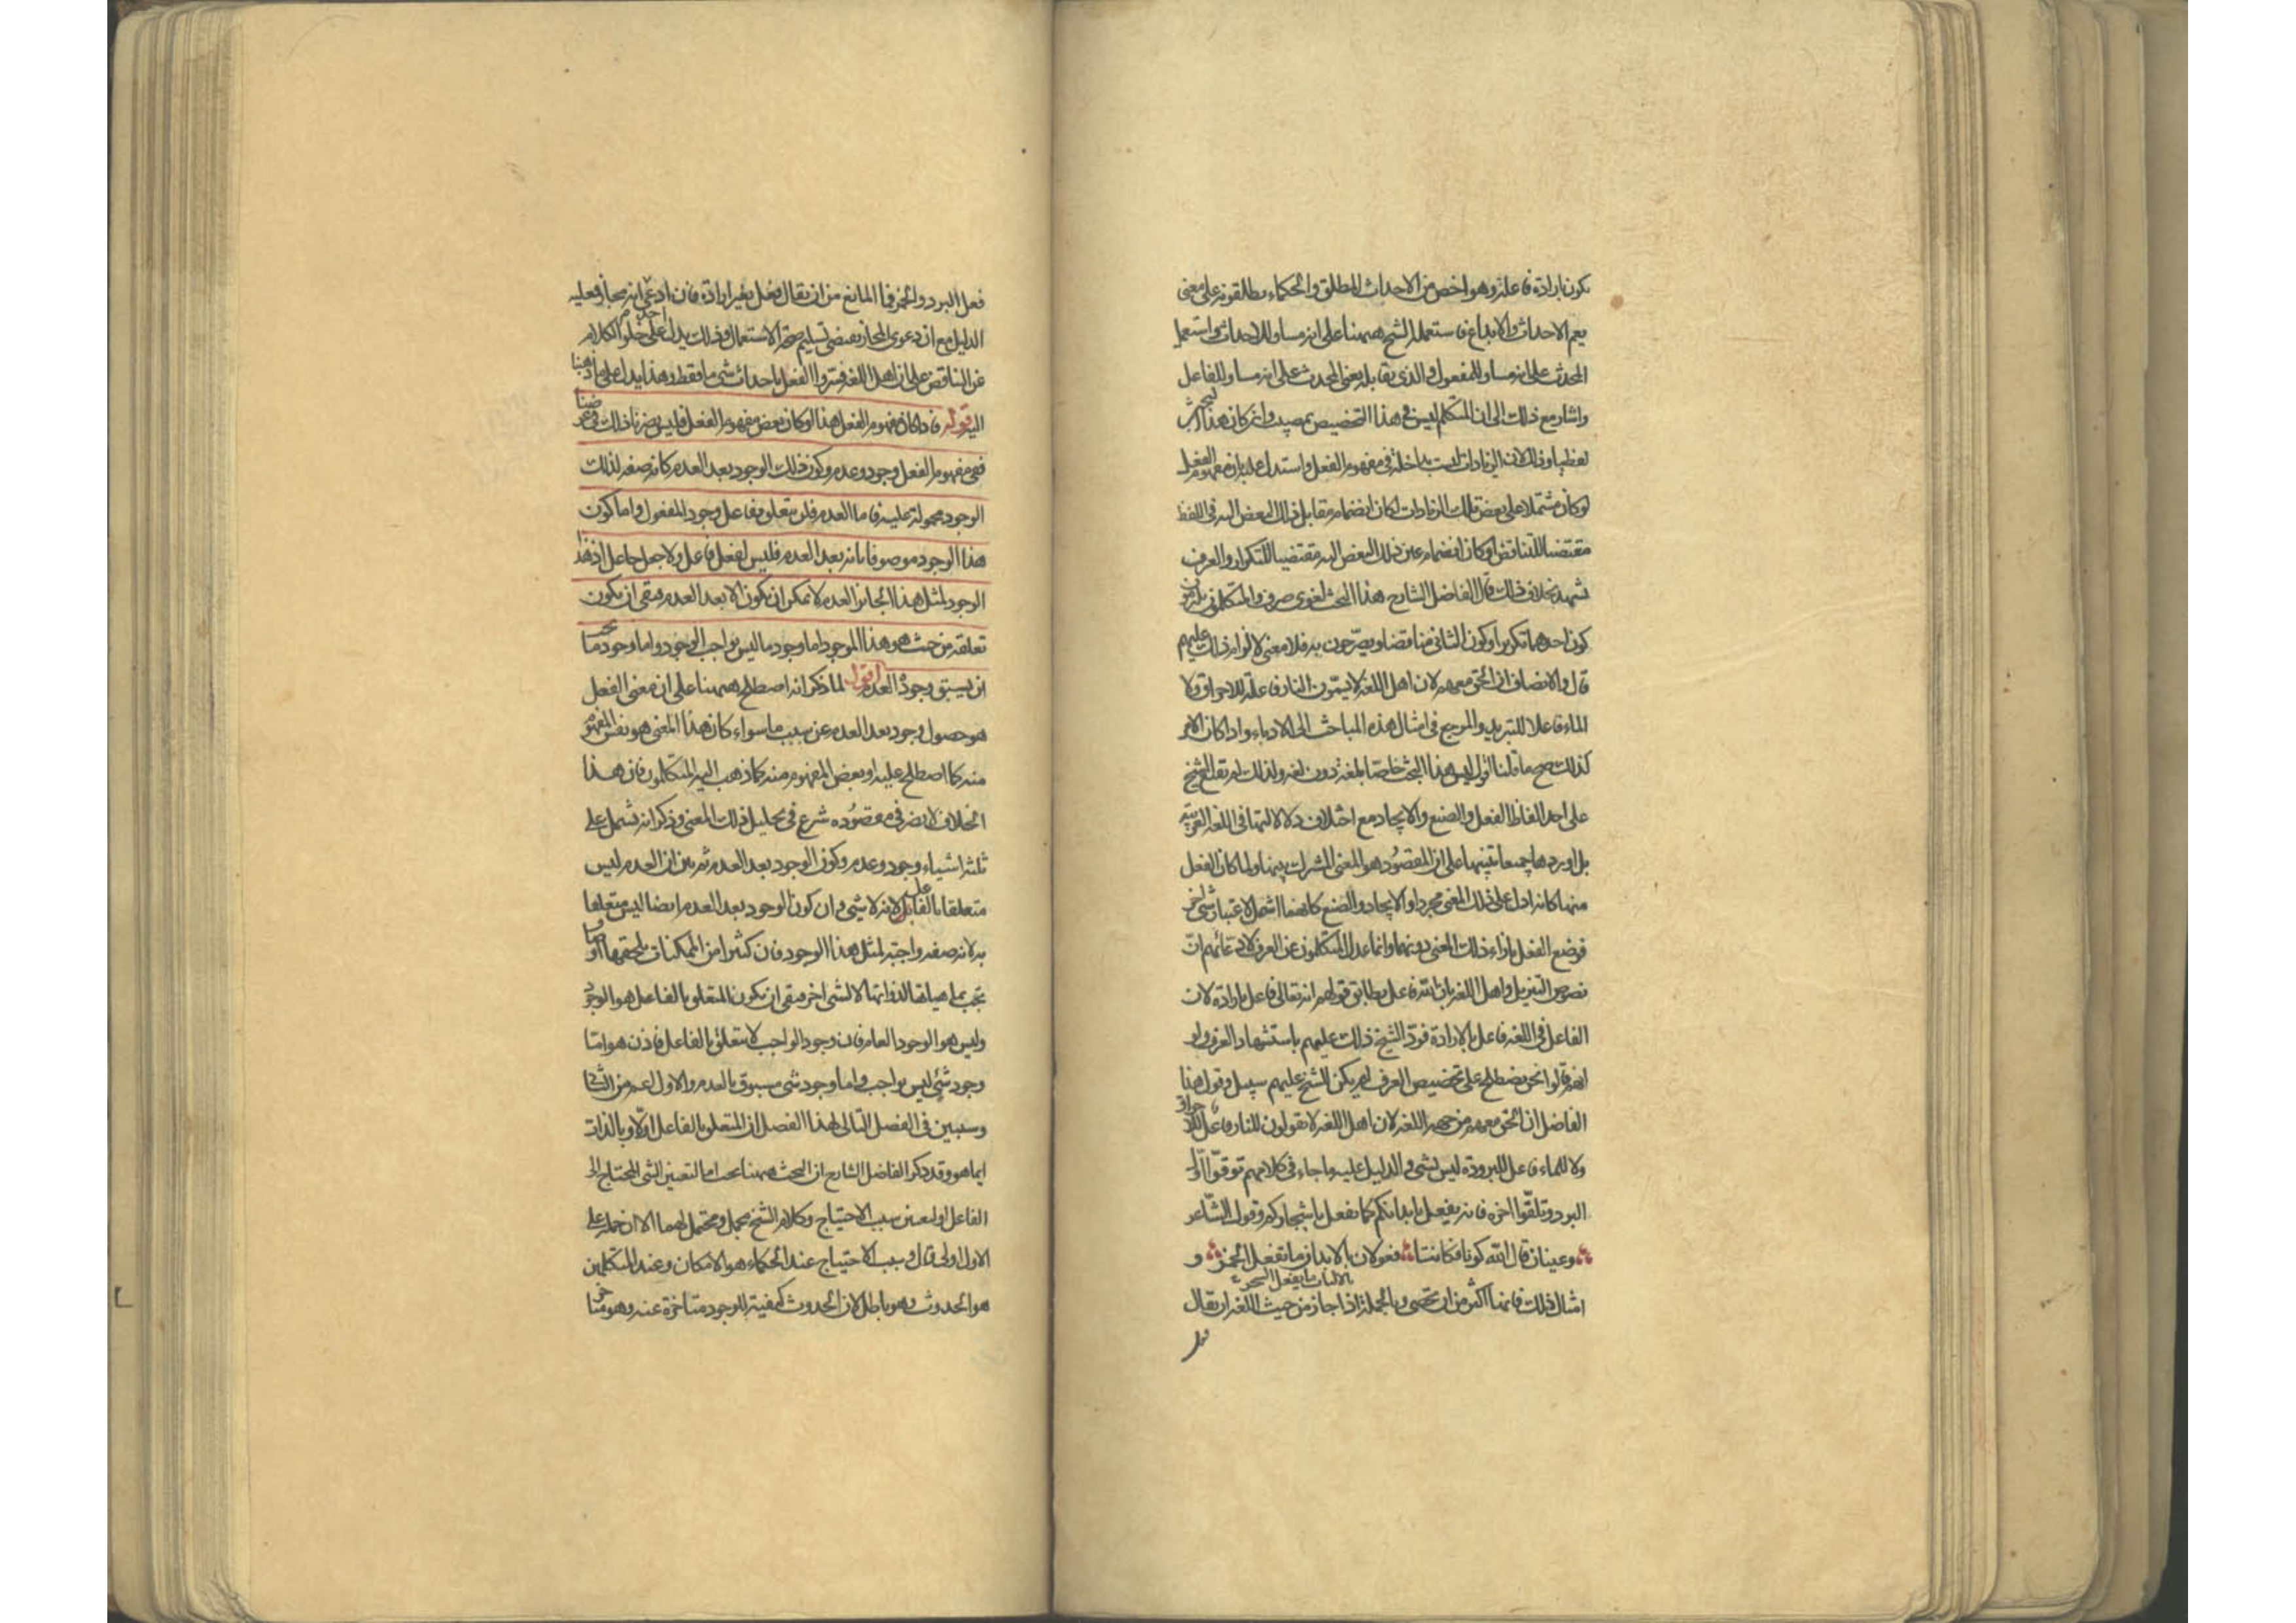 يكون بارادة فاعله وهو اخص من الاحداث المطلق والحكماء يطلقونه على معنى
يعم الاحداث والابداع فاستعمله الشيخ ههنا على انه مساو للاحداث واستعمل
المحدث على انه مساو للمفعول والذي يقابله يعني المحدث على انه مساو للفاعل
واشار مع ذلك الى ان المتكلم ليس في هذا التخصيص بمصيب وان كان هذا البحث
لفظيا وذلك لان الزيادات ليست بداخلة في مفهوم الفعل واستدل عليه بان مفهوم الفعل
لو كان مشتملا على بعض تلك الزيادات لكان انضمام مقابل ذلك البعض اليه في اللفظ
مقتضيا للتناقض او كان انضمام عين ذلك البعض اليه مقتضيا للتكرار والعرف
يشهد بخلاف ذلك قال الفاضل الشارح هذا البحث لغوي صرف والمتكلمون يلتزمون
كون احدهما تكريرا وكون الثاني مناقضا ويصرحون به فلا معنى لالزام ذلك عليهم
قال والانصاف ان الحق معهم لان اهل اللغة لا يسمون النار فاعلة للاحراق ولا
الماء فاعلا للتبريد والمرجع في امثال هذه المباحث الى الادباء واذا كان الامر
كذلك صح ما قلنا اقول ليس هذا البحث خاصا بلغة دون لغة ولذلك لم يقل الشيخ
على احد الفاظ الفعل والصنع والايجاد مع اختلاف دلالاتها في اللغة العربية
بل اوردها جميعا تنبيها على ان المقصود هو المعنى المشترك بينها ولما كان الفعل
منها كانه ادل على ذلك المعنى مجردا والايجاد والصنع كانهما اشمل لاعتبار شي اخر
فوضع الفعل بازاء ذلك المعنى دونهما وانما عدل المتكلمون عن العرف لادعائهم ان
نصوص التنزيل واهل اللغة بان الله فاعل يطابق قولهم انه تعالى فاعل بارادة لان
الفاعل في اللغة فاعل بالارادة فرد الشيخ ذلك عليهم باستشهاد العرف ولو
انهم قالوا نحن نصطلح على تخصيص العرف لم يكن للشيخ عليهم سبيل وقول هذا
الفاضل ان الحق معهم من جهة اللغة لان اهل اللغة لا يقولون للنار فاعل للاحراق
ولا للماء فاعل للبرودة ليس بشي والدليل عليه ما جاء في كلامهم توقوا اول
البرد وتلقوا اخره فانه يفعل بابدانكم كما يفعل باشجاركم وقول الشاعر
وعينان قال الله كونا فكانتا فعولان بالابدان ما تفعل الخمر و
بالالباب ما يفعل السحر
امثال ذلك فانها اكثر من ان تحصى وبالجملة اذا جاز من حيث اللغة ان يقال
فعل
فعل البرد والخمر فما المانع من ان يقال فعل بغير ارادة فان ادعى انه مجاز فعليه
الدليل مع ان دعوى المجاز يقتضي تسليم صحة الاستعمال وذلك يدل على خلو الكلام
عن التناقض على ان اهل اللغة فسروا الفعل باحداث شي ما فقط وهذا يدل على ما ذهبنا
اليه قوله فاذا كان مفهوم الفعل هذا او كان بعض مفهوم الفعل فليس يضرنا ذلك في غرضنا
ففي مفهوم الفعل وجود وعدم وكون ذلك الوجود بعد العدم كانه صفة لذلك
الوجود محمولة عليه فاما العدم فلن يتعلق بفاعل وجود المفعول واما كون
هذا الوجود موصوفا بانه بعد العدم فليس لفعل فاعل ولا جعل جاعل اذ هذا
الوجود لمثل هذا الجائز العدم لا يمكن ان يكون الا بعد العدم فبقي ان يكون
تعلقه من حيث هو هذا الموجود اما وجود ما ليس بواجب الوجود واما وجود ما يجب
ان يسبق وجوده العدم اقول لما ذكر انه اصطلح ههنا على ان معنى الفعل
هو حصول وجود بعد العدم عن سبب ما سواء كان هذا المعنى هو نفس المفهوم
منه كما اصطلح عليه او بعض المفهوم منه كما ذهب اليه المتكلمون فان هذا
الخلاف لا يضر في مقصوده شرع في تحليل ذلك المعنى وذكر انه يشمل على
ثلثة اشياء وجود وعدم وكون الوجود بعد العدم ثم بين ان العدم ليس
متعلقا بالفاعل لانه لا شي وان كون الوجود بعد العدم ايضا ليس متعلقا
به لانه صفة واجبة لمثل هذا الوجود فان كثيرا من الممكنات يلحقها اوصاف
تجب بماهياتها لذواتها لا لشي اخر فبقي ان يكون المتعلق بالفاعل هو الوجود
وليس هو الوجود العام فان وجود الواجب لا يتعلق بالفاعل فاذن هو اما
وجود شي ليس بواجب واما وجود شي مسبوق بالعدم والاول اعم من الثاني
وسيبين في الفصل التالي لهذا الفصل ان المتعلق بالفاعل اولا وبالذات
ايما هو وقد ذكر الفاضل الشارح ان البحث ههنا بحث اما لتعيين الشي المحتاج الى
الفاعل او لتعيين سبب الاحتياج وكلام الشيخ مجمل ومحتمل لهما الا ان حمله على
الاول اولى قال وسبب الاحتياج عند الحكماء هو الامكان وعند المتكلمين
هو الحدوث وهو باطل لان الحدوث كيفية للوجود متاخرة عنه وهو متاخر